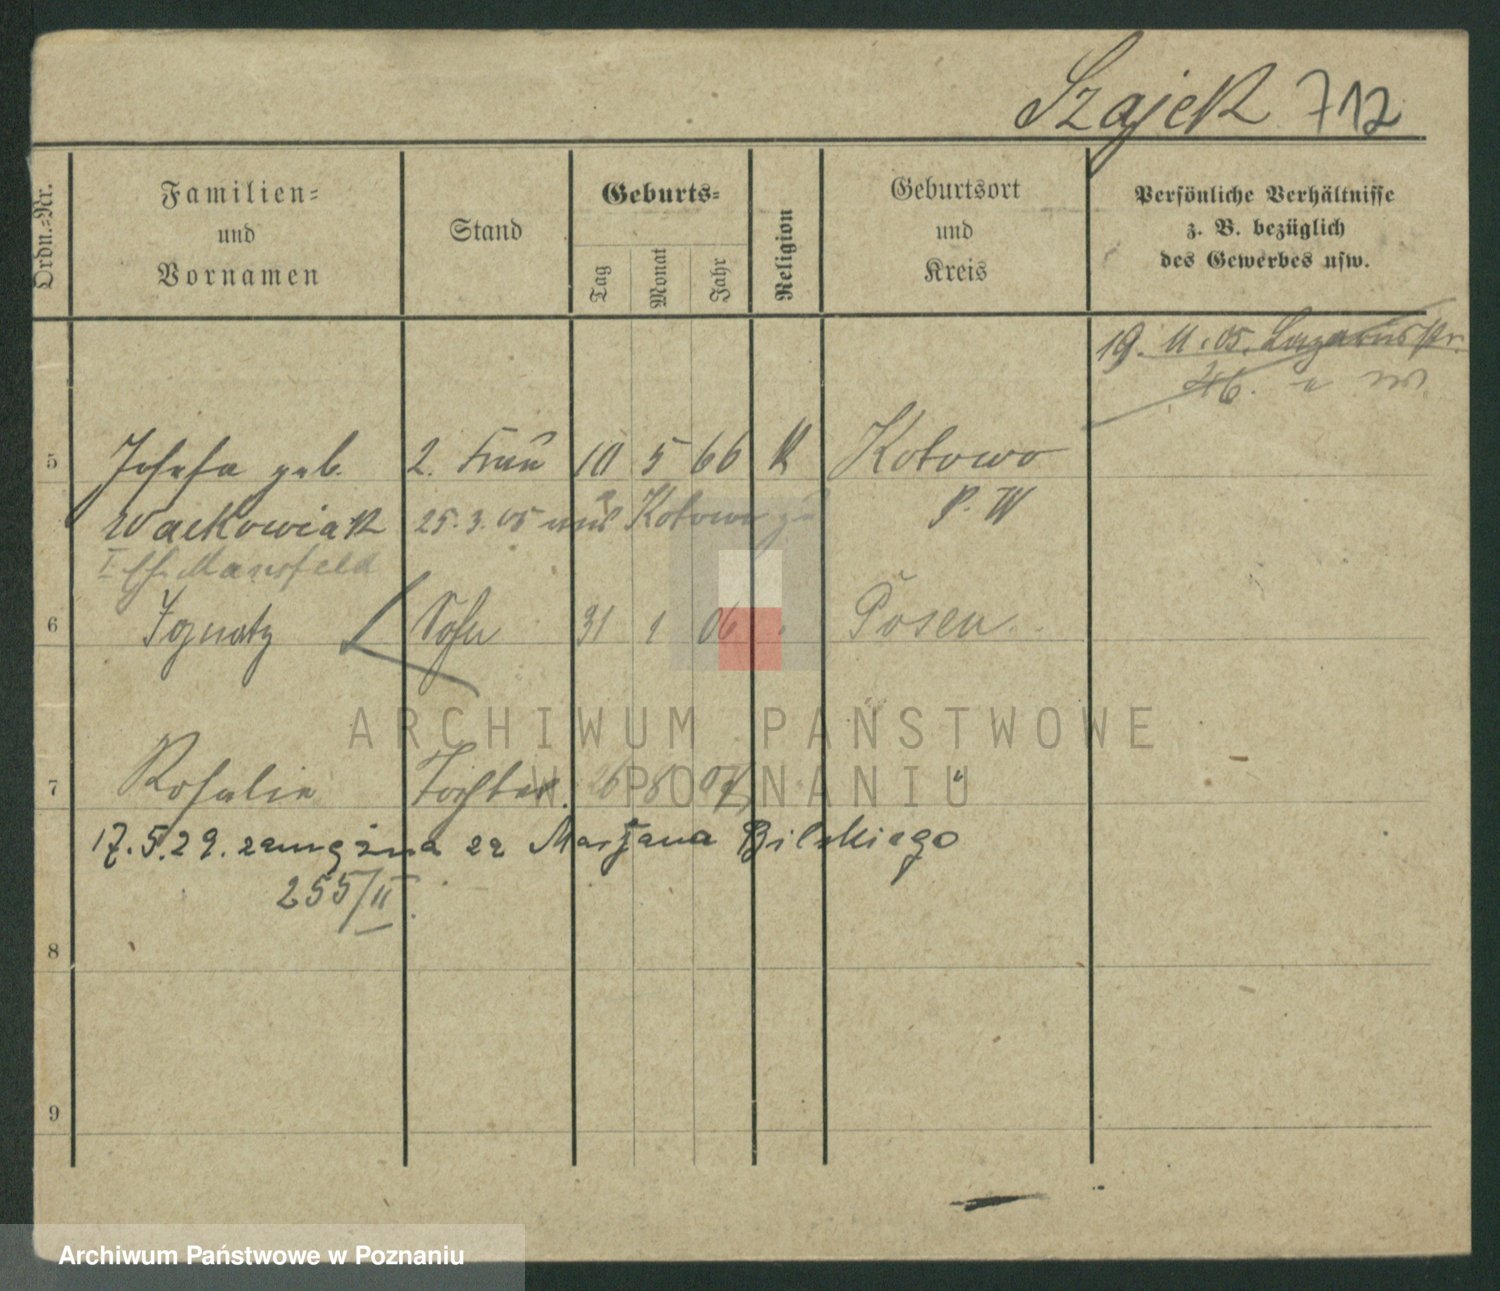 Szajek 712
Ordn.-Nr.
Familien-
und
Vornamen
Stand
Geburts-
Tag
Monat
Jahr
Religion
Geburtsort
und
Kreis
Persönliche Verhältnisse
z. B. bezüglich
des Gewerbes usw.
19. 11. 05. Lazarusstr.
46.
5 Josefa geb. 2. Frau 10 5 66 K Kotowo
Wackowiak 25.3.05 aus Kotowo zu P. W
I Eh. Mansfeld
6 Ignatz Sohn 31 1 06 Posen
7 Rosalie Tochter. 26 8 07 "
17.5.29. zamężna za Marjana Bilskiego
255/II.
8
9
ARCHIWUM PAŃSTWOWE
W POZNANIU
Archiwum Państwowe w Poznaniu